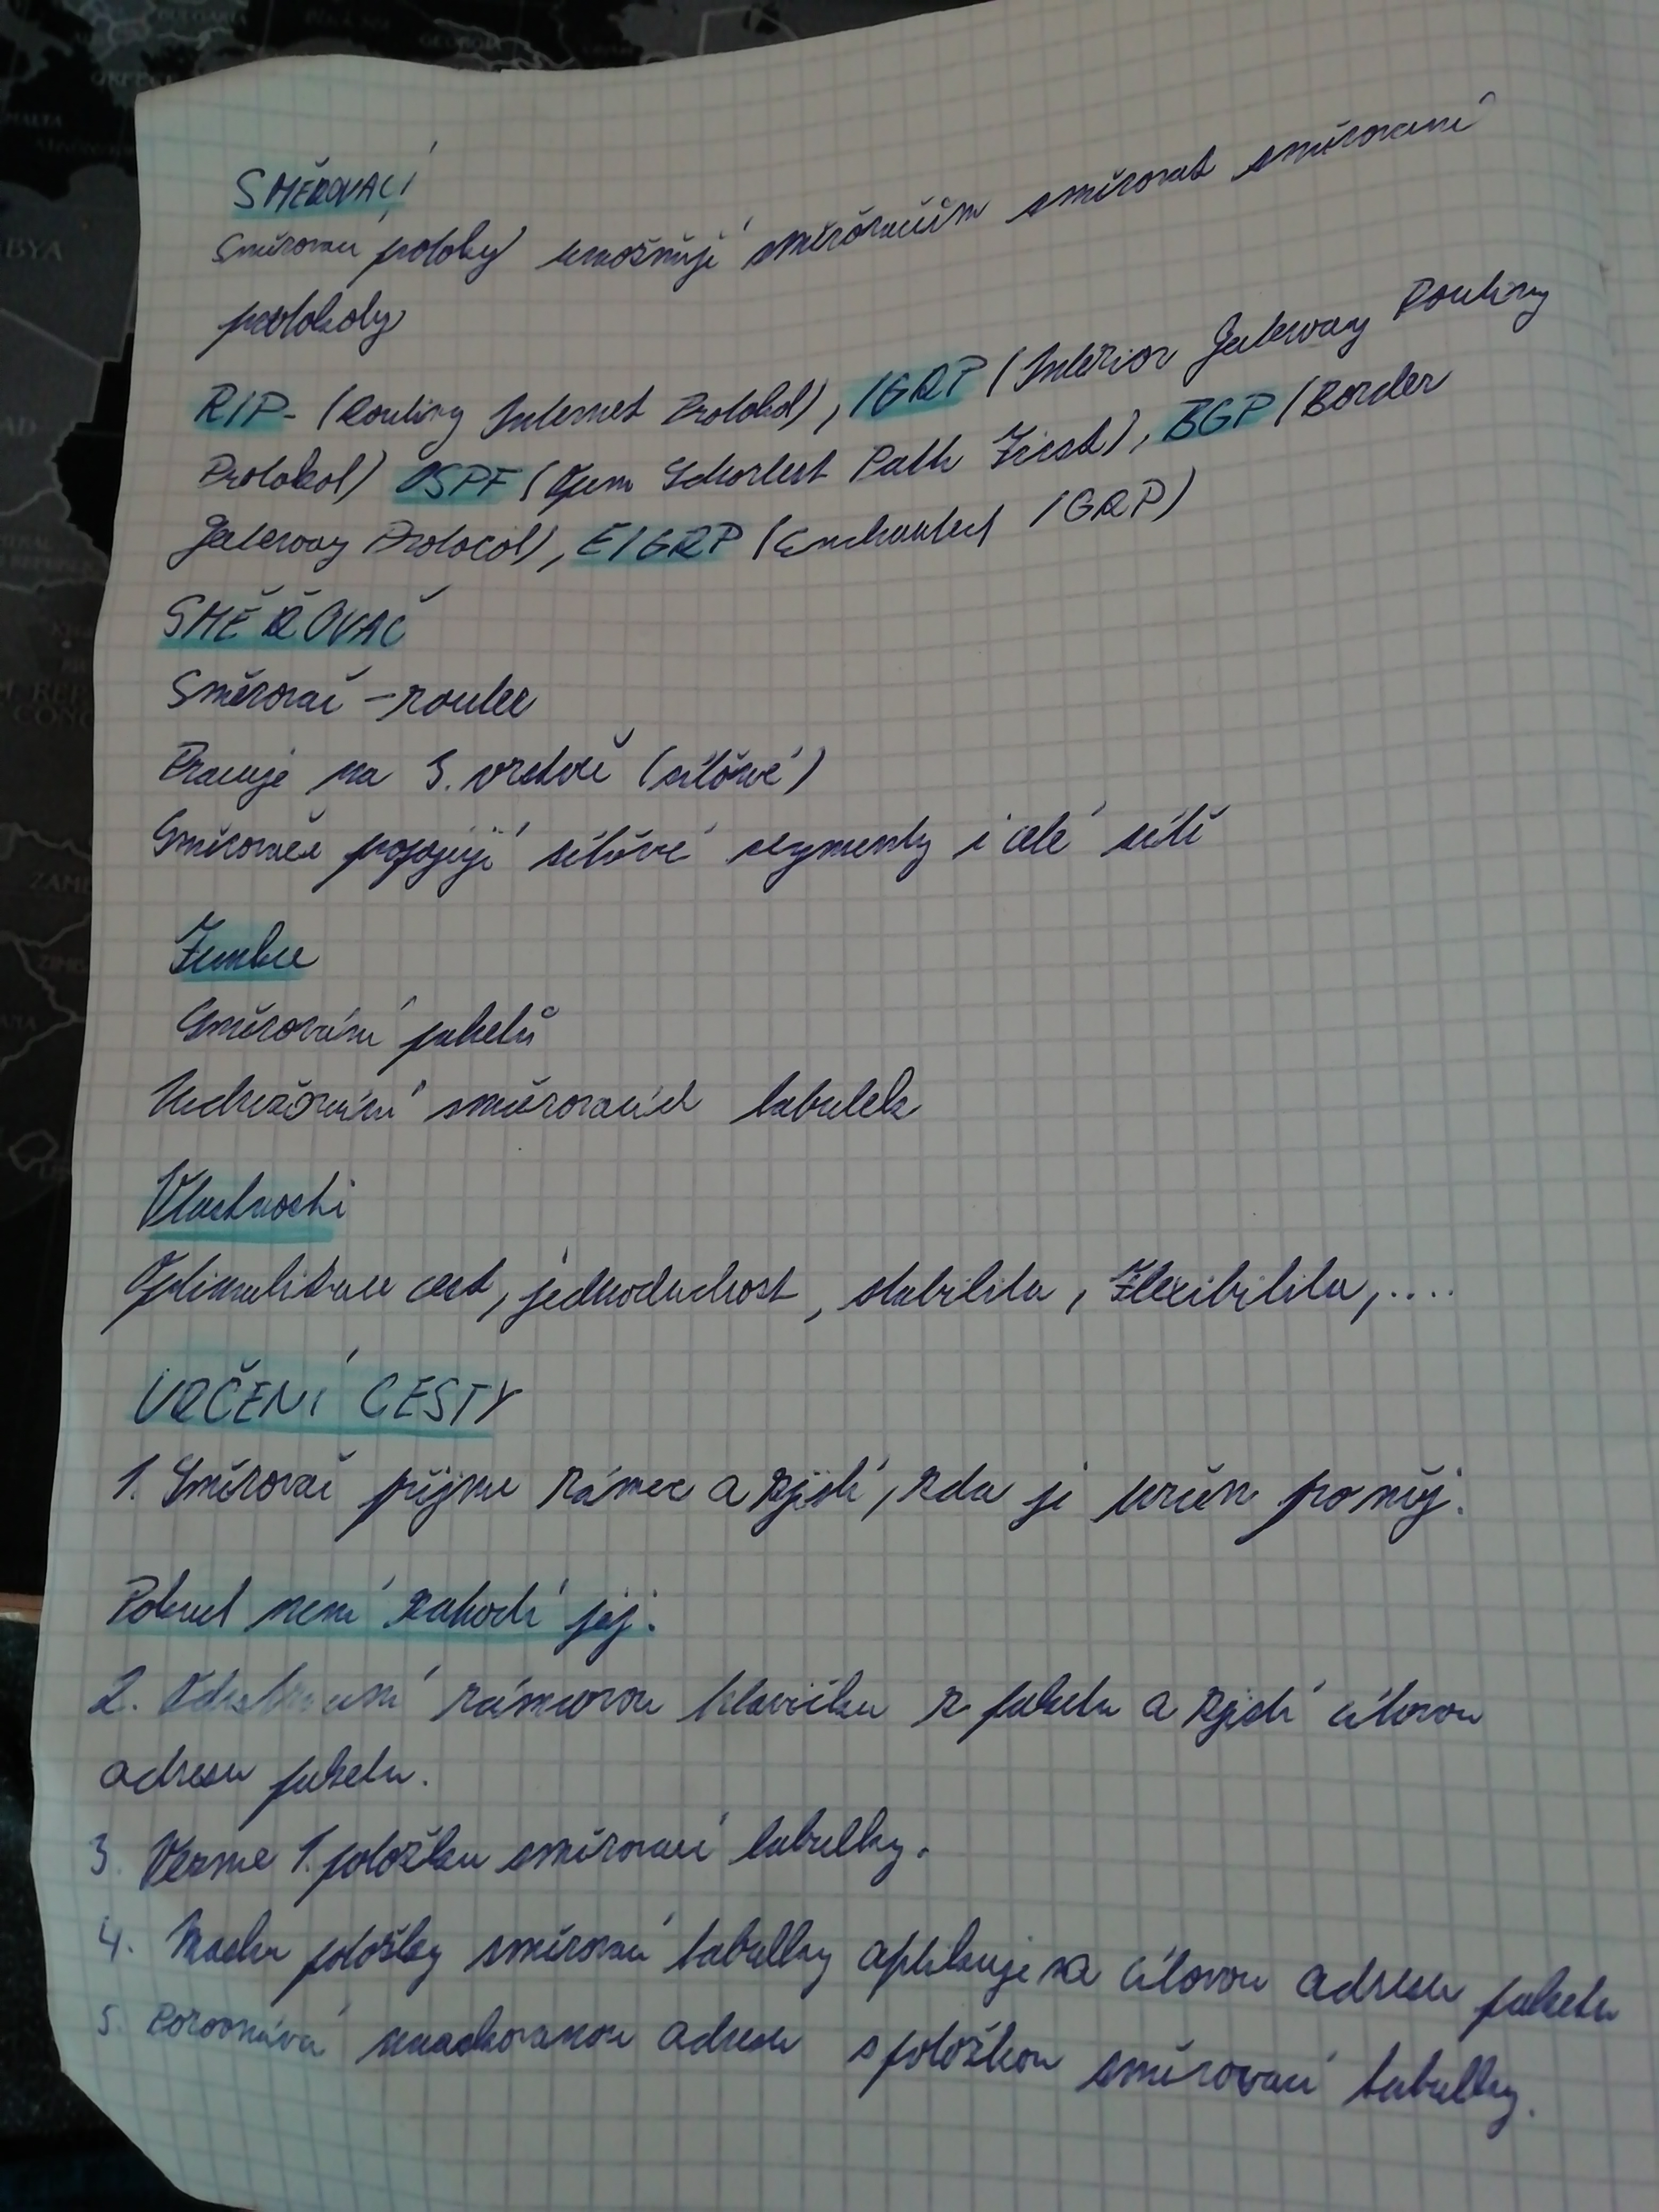 SMĚROVACÍ
Směrovací protokoly umožňují směrovačům směrovat směrovaní
protokoly
RIP- (Routing Internet Protokol), IGRP (Interior Gateway Routing
Protokol) OSPF (Open Schortest Path First), BGP (Border
Gateway Protocol), EIGRP (Enchanted IGRP)
SMĚROVAČ
Směrovač - router
Pracuje na 3. vrstvě (síťové)
Směrovače propojují síťové segmenty i celé sítě
Funkce
Směrování paketů
Udržování směrovacích tabulek
Vlastnosti
Optimalizace cest, jednoduchost, stabilita, Flexibilita,....
URČENÍ CESTY
1. Směrovač přijme rámec a zjistí, zda je určen pro něj.
Pokud není zahodí jej.
2. rámcovou hlavičku z paketu a zjistí cílovou
adresu paketu.
3. Vezme 1. položku směrovací tabulky.
4. Masku položky směrovací tabulky aplikuje na cílovou adresu paketu
5. Porovnává maskovanou adresu s položkou směrovací tabulky.